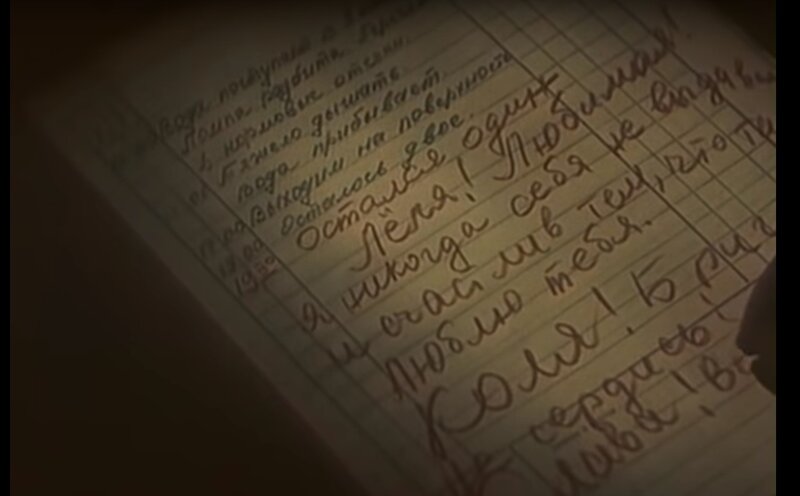 вода поступает в
Помпа
в кормовые отсеки.
Тяжело дышать.
вода прибывает.
Выходим на поверхность
осталось двое.
остался один
Лёля! Любимая!
я никогда себя не выдавал
и счастлив тем, что ты
Люблю тебя.
Коля! Бриг
сердись!